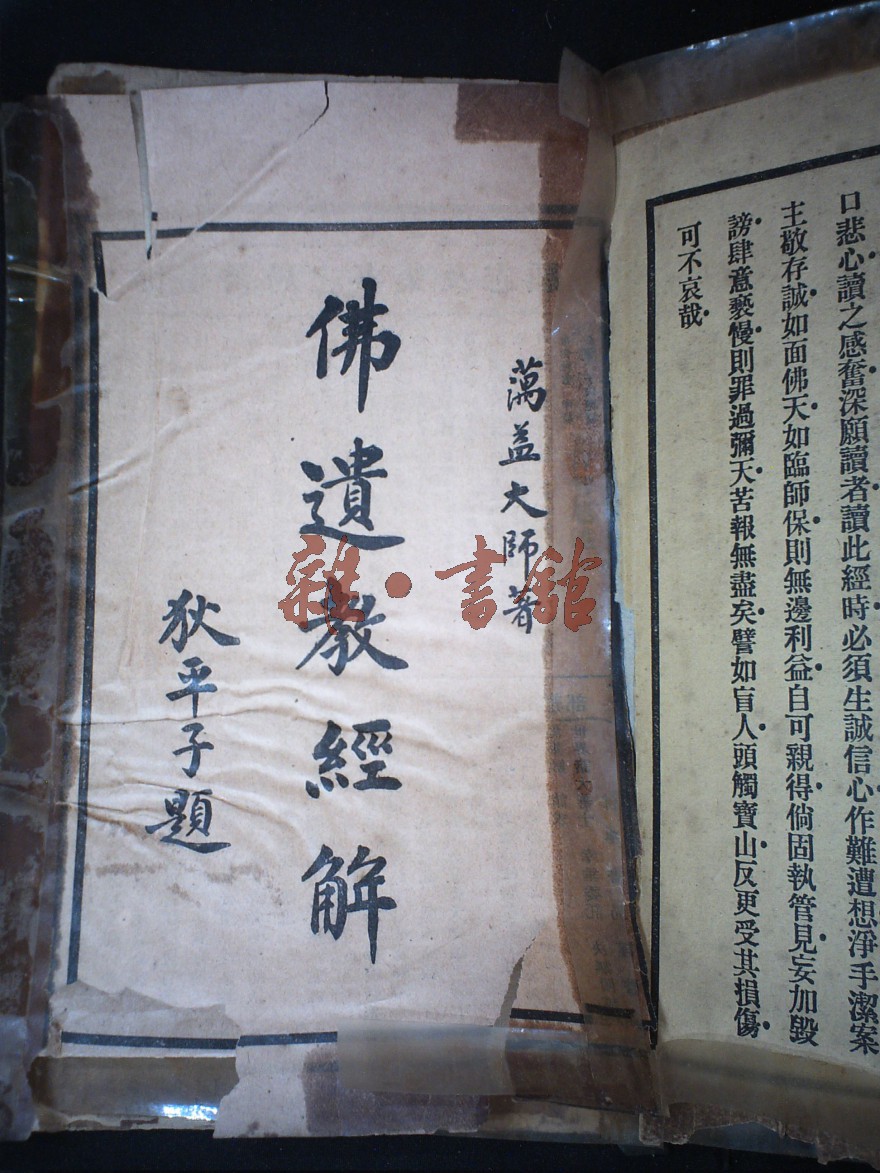 口悲心讀之感奮深願讀者讀此經時必須生誠信心作難遭想淨手潔案
主敬存誠如面佛天如臨師保則無邊利益自可親得倘固執管見妄加毀
謗肆意褻慢則罪過彌天苦報無盡矣譬如盲人頭觸寶山反更受其損傷
可不哀哉
蕅益大師著
佛遺教經解
狄平子題
雜·書館